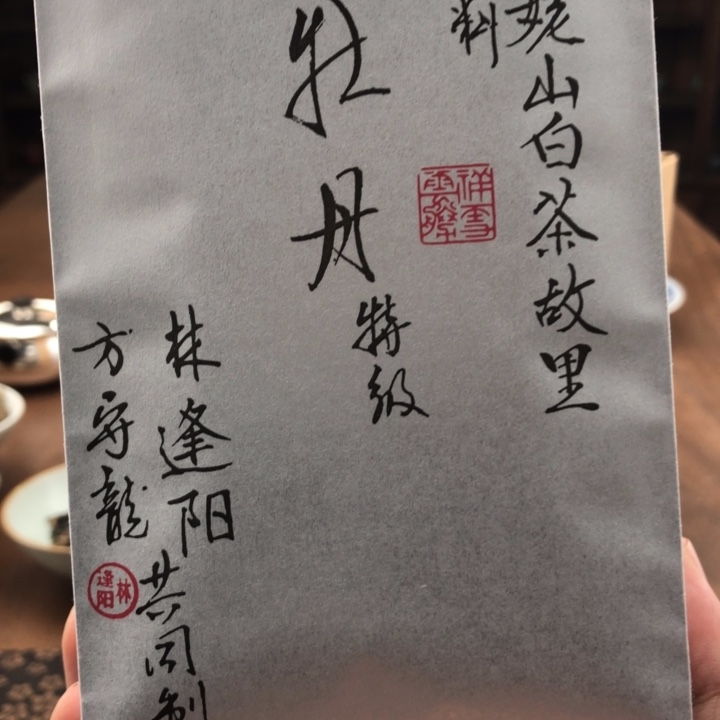 姥山白茶故里
料
牡丹
特级
林逢阳
方守龍
共同制
林逢阳